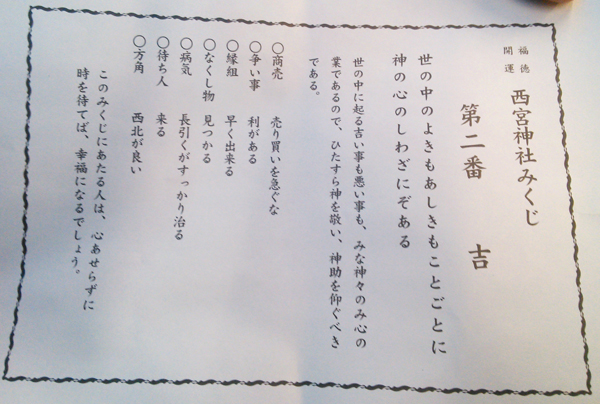 福徳
開運
西宮神社みくじ
第二番　吉
世の中のよきもあしきもことごとに
神の心のしわざにぞある
世の中に起る吉い事も悪い事も、みな神々のみ心の
業であるので、ひたすら神を敬い、神助を仰ぐべき
である。
〇商売　売り買いを急ぐな
〇争い事　利がある
〇縁組　早く出来る
〇なくし物　見つかる
〇病気　長引くがすっかり治る
〇待ち人　来る
〇方角　西北が良い
このみくじにあたる人は、心あせらずに
時を待てば、幸福になるでしょう。